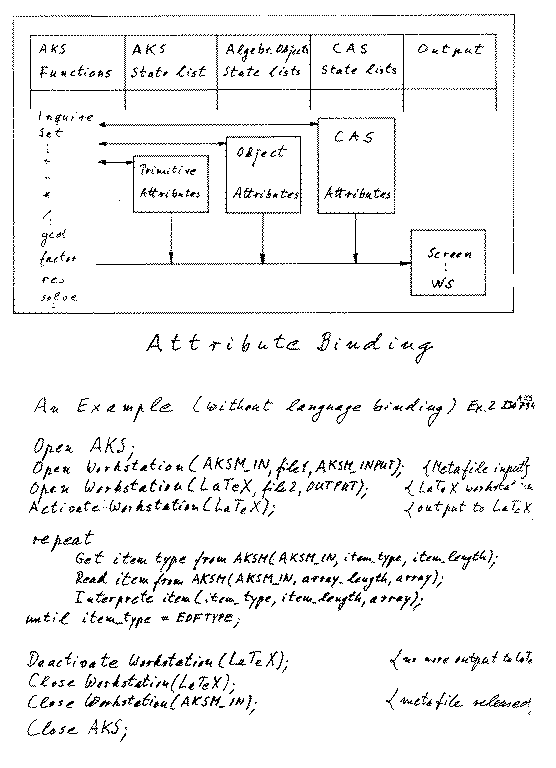 AKS Functions
AKS State list
Algebr. Objects State Lists
CAS State lists
Output
Inquire
Set
CAS
Object
Primitive
Attributes
Attributes
Attributes
+
-
*
/
gcd
factor
res
solve
Screen
WS
Attribute Binding
An Example (without language binding) Ex.2
Open AKS;
Open Workstation(AKSM_IN, file1, AKSM_INPUT); {Metafile input}
Open Workstation(LaTeX, file2, OUTPUT); {LaTeX
Activate Workstation(LaTeX); {output to LaTeX
repeat
Get item type from AKSM(AKSM_IN, item_type, item_length);
Read item from AKSM(AKSM_IN, array_length, array);
Interprete item(item_type, item_length, array);
until item_type = EOFTYPE;
Deactivate Workstation(LaTeX); {no more output to
Close Workstation(LaTeX);
Close Workstation(AKSM_IN); {metafile released
Close AKS;